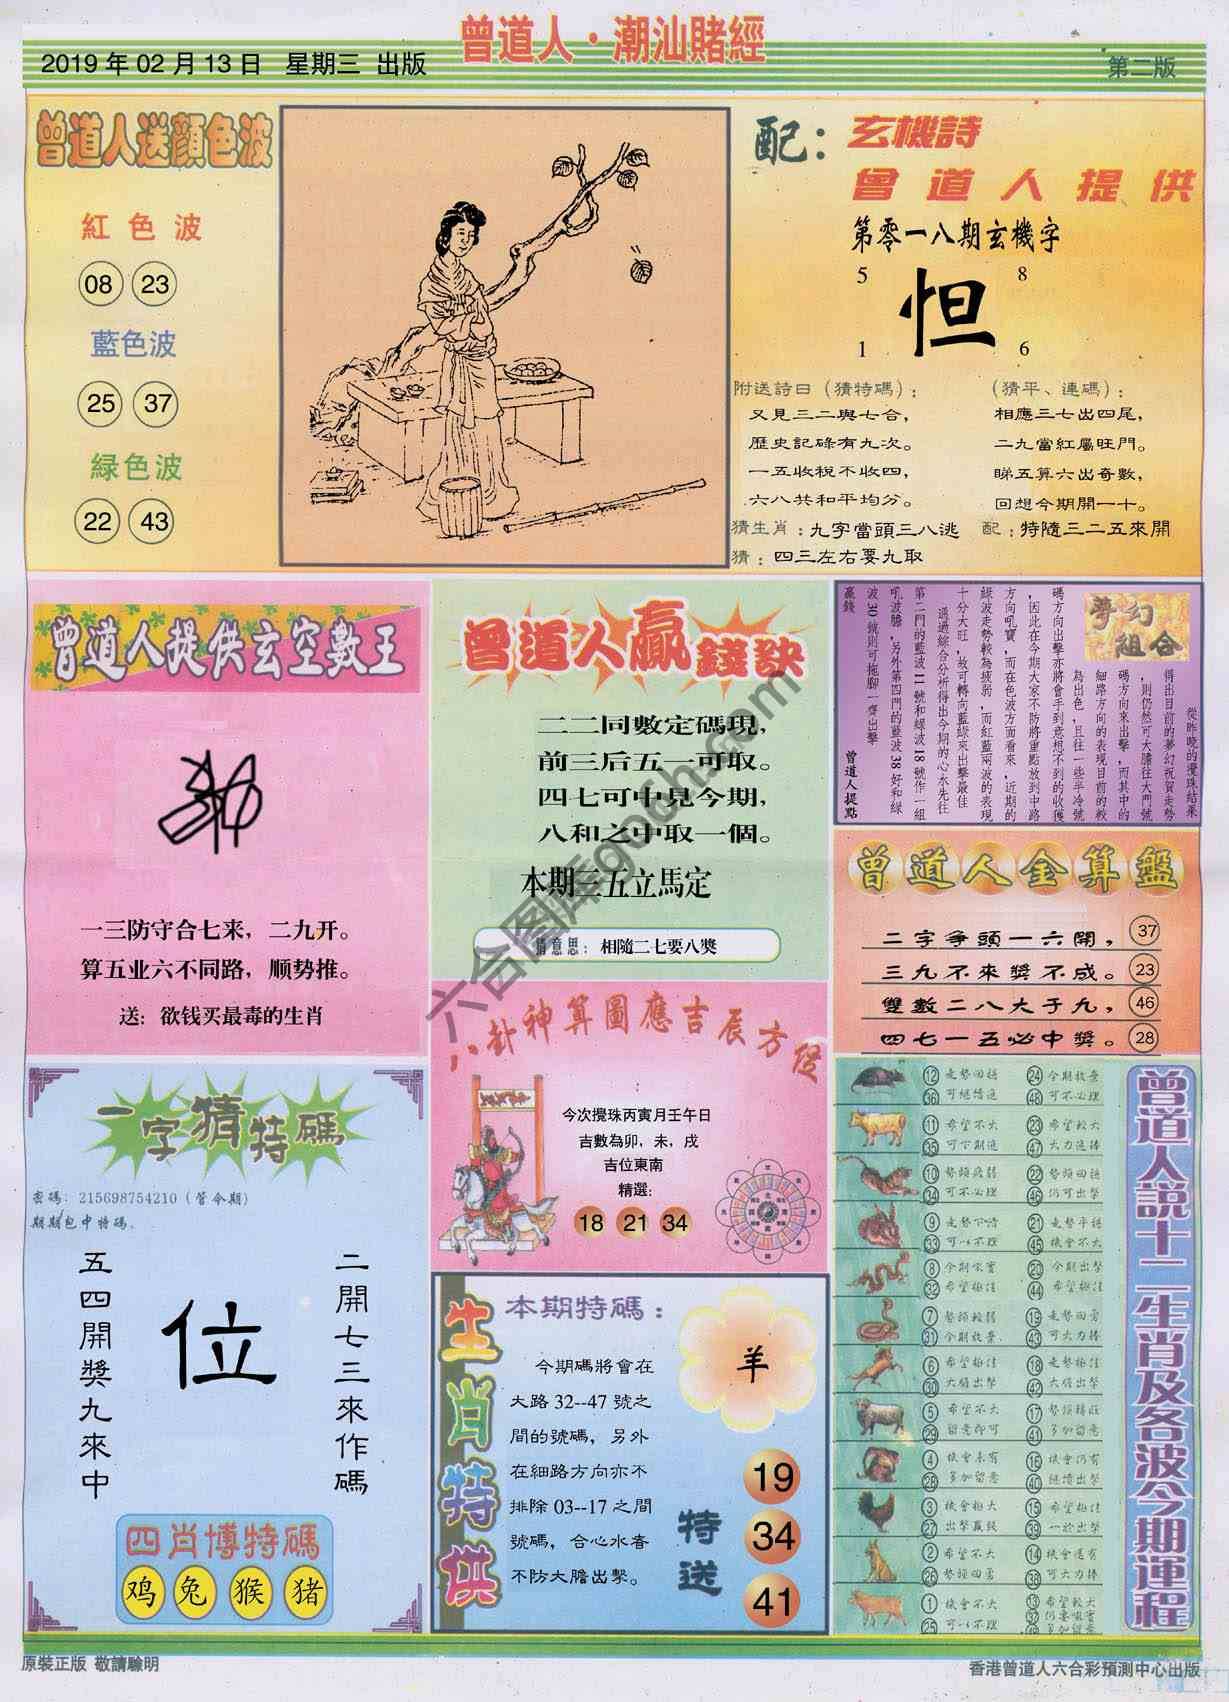 曾道人·潮汕賭經
2019 年 02 月 13 日 星期三 出版
第二版
曾道人送顔色波
紅色波
08 23
藍色波
25 37
緑色波
22 43
配：
玄機詩
曾道人提供
第零一八期玄機字
5 8
怛
1 6
附送詩曰（猜特碼）：
又見三二與七合，
歷史記碌有九次。
一五收稅不收四，
六八共和平均分。
（猜平、連碼）：
相應三七出四尾，
二九當紅屬旺門。
睇五算六出奇數，
回想今期開一十。
猜生肖：九字當頭三八逃
配：特隨三二五來開
猜：四三左右要九取
曾道人提供玄空數王
一三防守合七来，二九开。
算五业六不同路，顺势推。
送：欲钱买最毒的生肖
曾道人贏錢訣
二二同數定碼現，
前三后五一可取。
四七可中見今期，
八和之中取一個。
本期三五立馬定
猜意思：相隨二七要八獎
夢幻組合
從昨晚的攪珠結果
得出目前的夢幻祝賀走勢
，則仍然可大膽往大門號
碼方向來出擊，而其中的
細路方向的表現目前的較
為出色，且往一些半冷號
碼方向出擊亦將會手到意想不到的收獲
，因此在今期大家不防將重點放到中路
方向吼寶，而在色波方面看來，近期的
綠波走勢較為疲弱，而紅藍兩波的表現
十分大旺，故可轉向藍綠來出擊最佳
通過綜合分析得出今期的心水先往
第二門的藍波 11 號和綠波 18 號作一組
吼波膽，另外第四門的藍波 38 好和綠
波 30 號則可拖腳一齊出擊
贏錢
曾道人提點
曾道人金算盤
二字爭頭一六開， 37
三九不來獎不成。 23
雙數二八大于九， 46
四七一五必中獎。 28
八卦神算圖應吉辰方位
今次攪珠丙寅月壬午日
吉數為卯，未，戌
吉位東南
精選：
18 21 34
一字猜特碼
密碼：215698754210（管令期）
期期包中特碼．
二開七三來作碼
位
五四開獎九來中
四肖博特碼
鸡 兔 猴 猪
生肖特供
本期特碼：
今期碼將會在
大路 32--47 號之
間的號碼，另外
在細路方向亦不
排除 03--17 之間
號碼，合心水者
不防大膽出擊。
羊
特送
19
34
41
曾道人說十二生肖及各波今期運程
12 走勢回穩 24 今期放棄
36 可繼續追 48 可不必理
11 希望不大 23 希望較大
35 可下期追 47 大力追捧
10 勢頭疲弱 22 勢頭回穩
34 可不必理 46 仍可出擊
9 走勢下滑 21 走勢平穩
33 可以不理 45 機會不大
8 今期吼實 20 今期出擊
32 希望極佳 44 希望極佳
7 勢頭較弱 19 走勢回勇
31 今期放棄 43 可大力捧
6 希望極佳 18 走勢極佳
30 大膽出擊 42 大膽出擊
5 希望不大 17 勢頭轉旺
29 留意即可 41 多加留意
4 機會未有 16 機會仍有
28 多加留意 40 繼續出擊
3 機會極大 15 希望極佳
27 出擊贏錢 39 一於出擊
2 希望不大 14 機會還有
26 勢頭回勇 38 可大力捧
1 機會不大 13 希望較大
25 可以不理 37 仍要吼實
49 多加留意
原裝正版 敬請騐明
香港曾道人六合彩預測中心出版
六合图库gooh.com